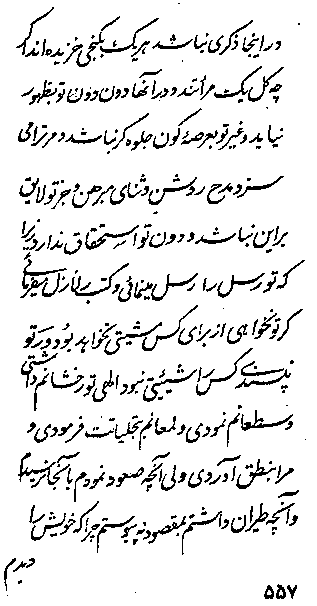 و در اینجا ذکری نباشد هر یک بکنجی خزیده اند اگر
چه کل یکت مرآتند و در آنها دون دون تو بظهور
نیاید و غیر تو بعرصه کون جلوه گر نباشد و مر ترا می
سزد مدح روشن و ثنای مبرهن و جز تو لایق
بر این نباشد و دون تو استحقاق ندارد زیرا
که تو رسل را رسل مینمائی و کتب را نازل میفرمائی
گر تو نخواهی از برای کس مشیتی نخواهد بود و ر تو
نپسندی کس را شیئیتی نبود الهی تو رخشانم داشتی
و سطعانم نمودی و لمعانم تجلیات فرمودی و
مرا بنطق آوردی ولی آنچه صعود نمودم بآنجا نرسیدم
و آنچه طیران داشتم بمقصود نه پیوستم چرا که خویش را
دیدم
۵۵۷